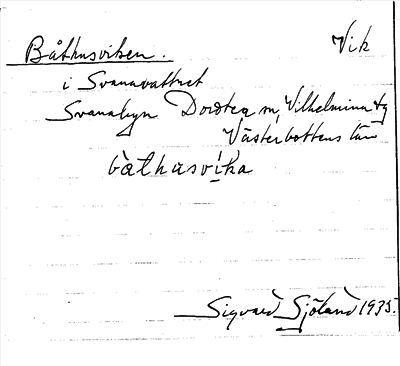 Båthusviken. Vik
i Svanavattnet
Svanabyn Dorotea m, Vilhelmina tg
Västerbottens län
bathusvika
Sigvard Sjöland 1935.